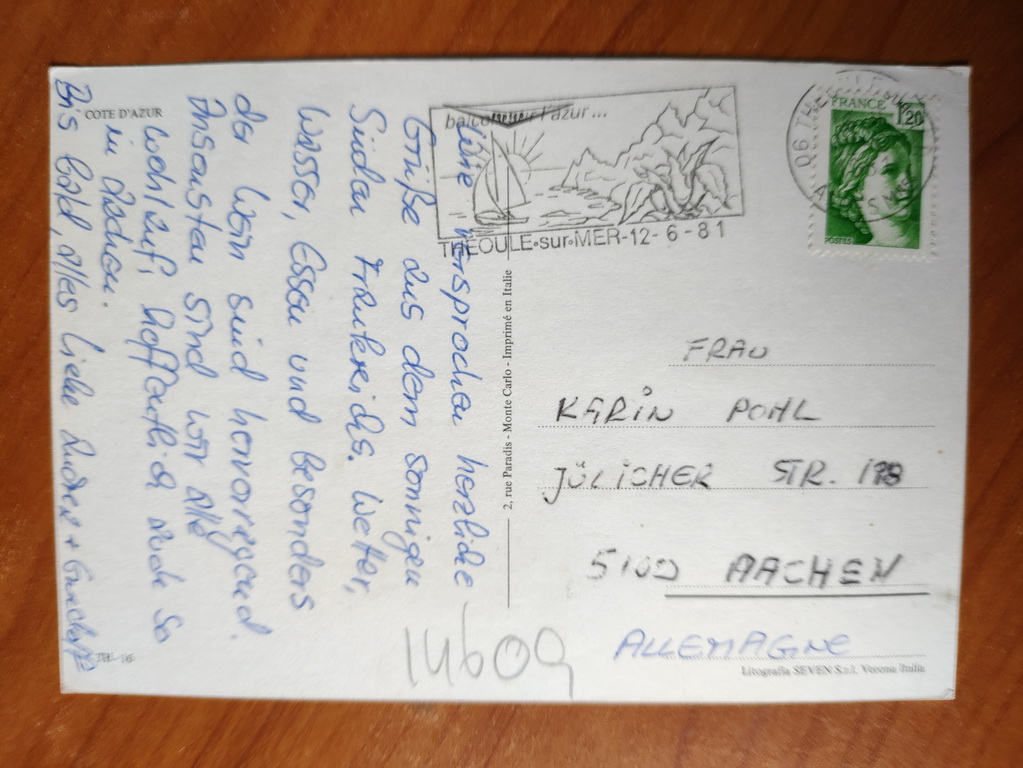 COTE D'AZUR
Wie versprochen herzliche
Grüße aus dem sonnigen
Süden Frankreichs. Wetter,
Wasser, Essen und besonders
der Wein sind hervorragend.
Ansonsten sind wir alle
wohlauf, hoffentlich auch so
in Aachen.
Bis bald, alles Liebe
balcon sur l'azur...
THEOULE-sur-MER-12-6-81
FRANCE
1,20
POSTES
2, rue Paradis - Monte Carlo - Imprimé en Italie
FRAU
KARIN POHL
JÜLICHER STR. 178
5100 AACHEN
ALLEMAGNE
14609
Litografia SEVEN S.r.l. Verona Italia